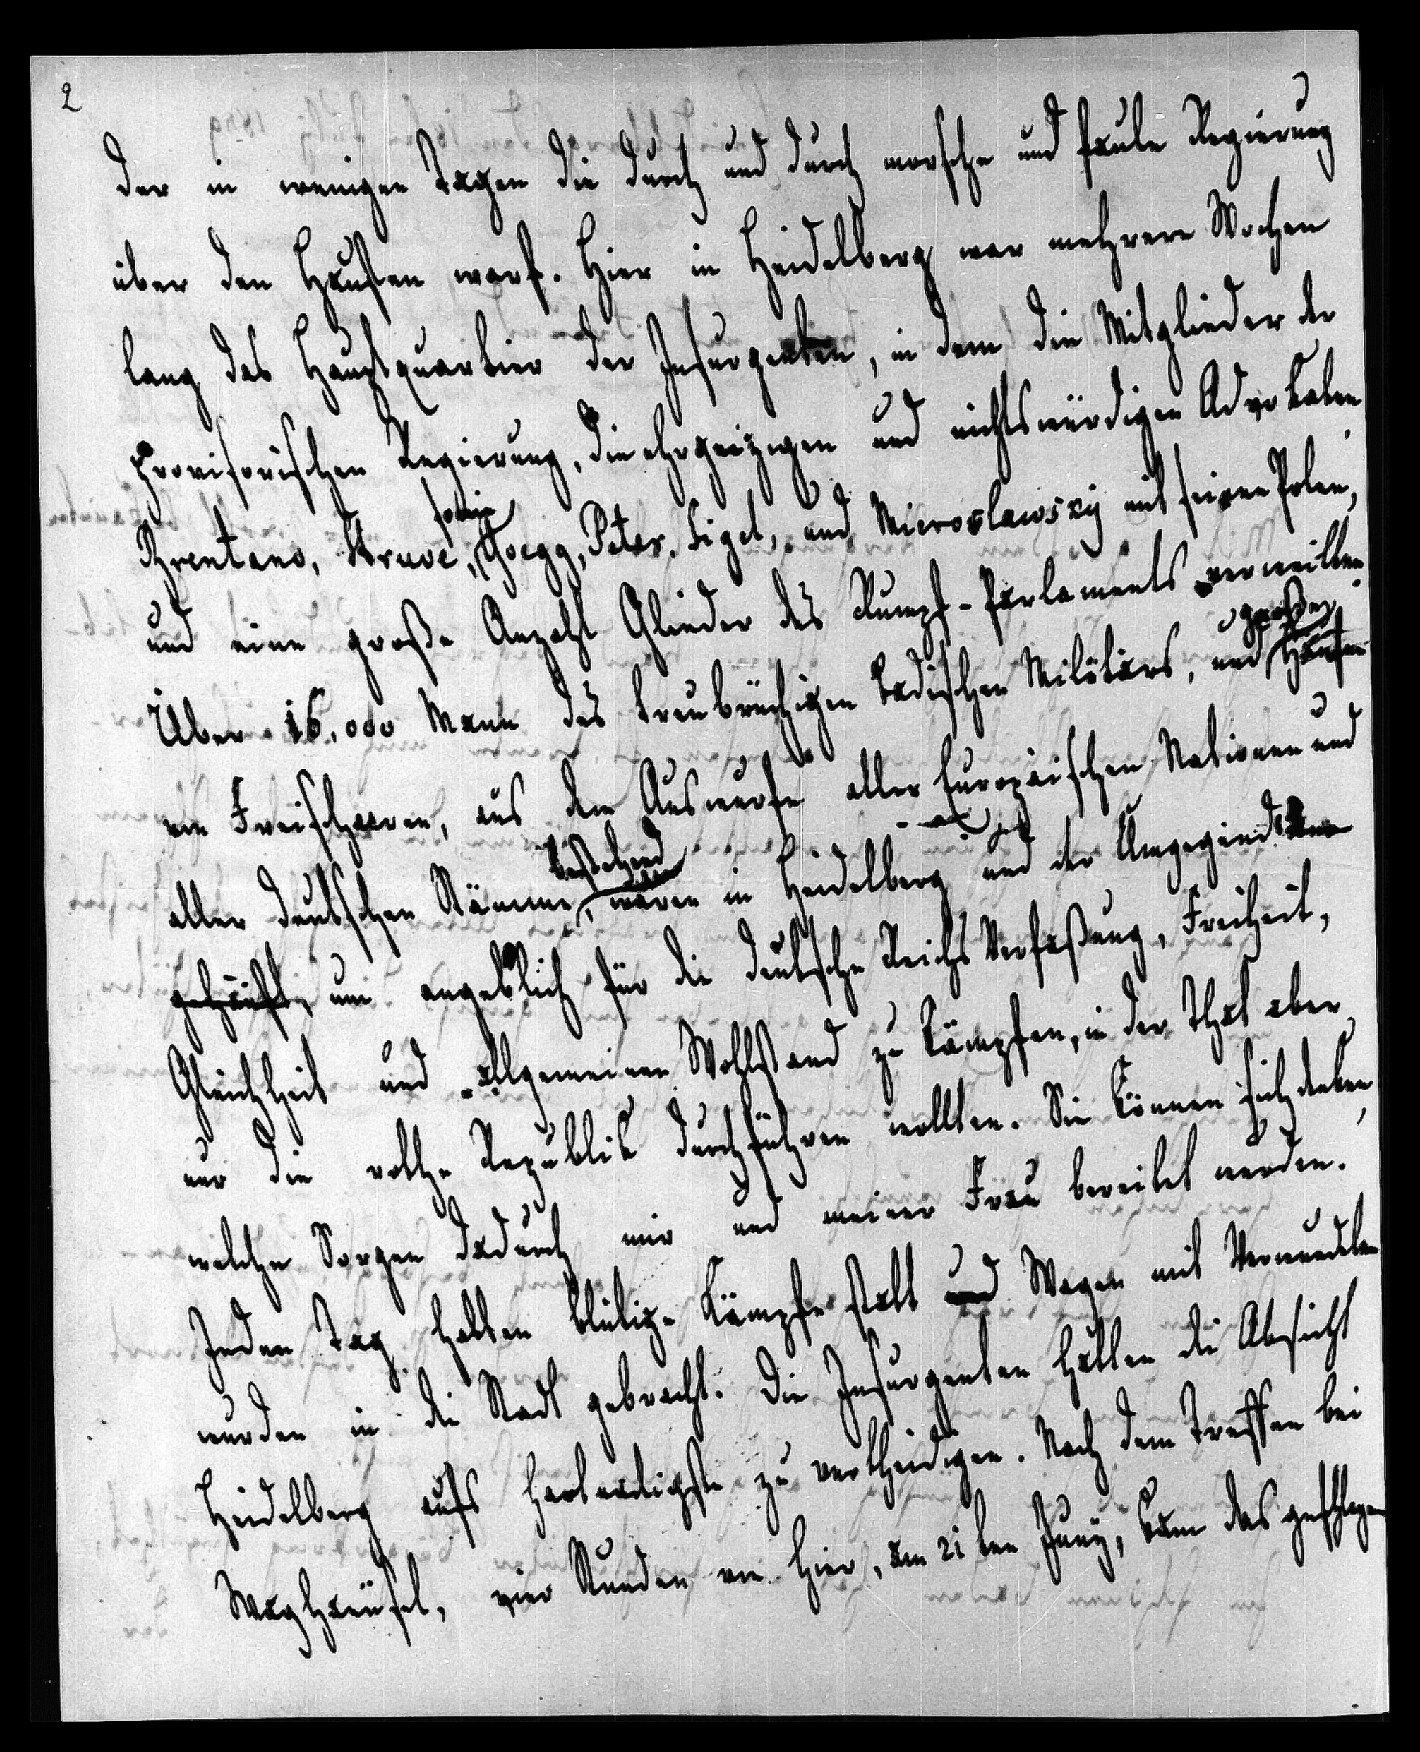 2
der in wenigen Tagen die durch und durch morsche und faule Regierung
über den Haufen warf. Hier in Heidelberg war mehrere Wochen
lang das Hauptquartier der Insurgenten, in dem die Mitglieder der
provisorischen Regierung, die ehrgeizigen und nichtswürdigen Advokaten
Brentano, Struve, sowie Goegg, Peter, Sigel, und Mieroslawsky mit seinen Polen,
und eine große Anzahl Glieder des Rumpf-Parlaments verweilten.
Über 16,000 Mann des treubrüchigen badischen Militärs, und große Haufen
von Freischaaren, aus dem Auswurfe aller Europäischen Nationen und
aller deutschen Stämme bestehend, waren in Heidelberg und der Umgegend
gehäuft, um angeblich für die deutsche Reichs Verfaßung, Freiheit,
Gleichheit und allgemeinen Wohlstand zu kämpfen, in der That aber
nur die rothe Republik durchführen wollten. Sie können sich denken,
welche Sorgen dadurch mir und meiner Frau bereitet wurden.
Jeden Tag hatten blutige Kämpfe statt und Wagen mit Verwundeten
wurden in die Stadt gebracht. Die Insurgenten hatten die Absicht
Heidelberg aufs hartnäckigste zu vertheidigen. Nach dem Treffen bei
Waghäusel, vier Stunden von hier, am 21ten Juny, kam das geschlagene